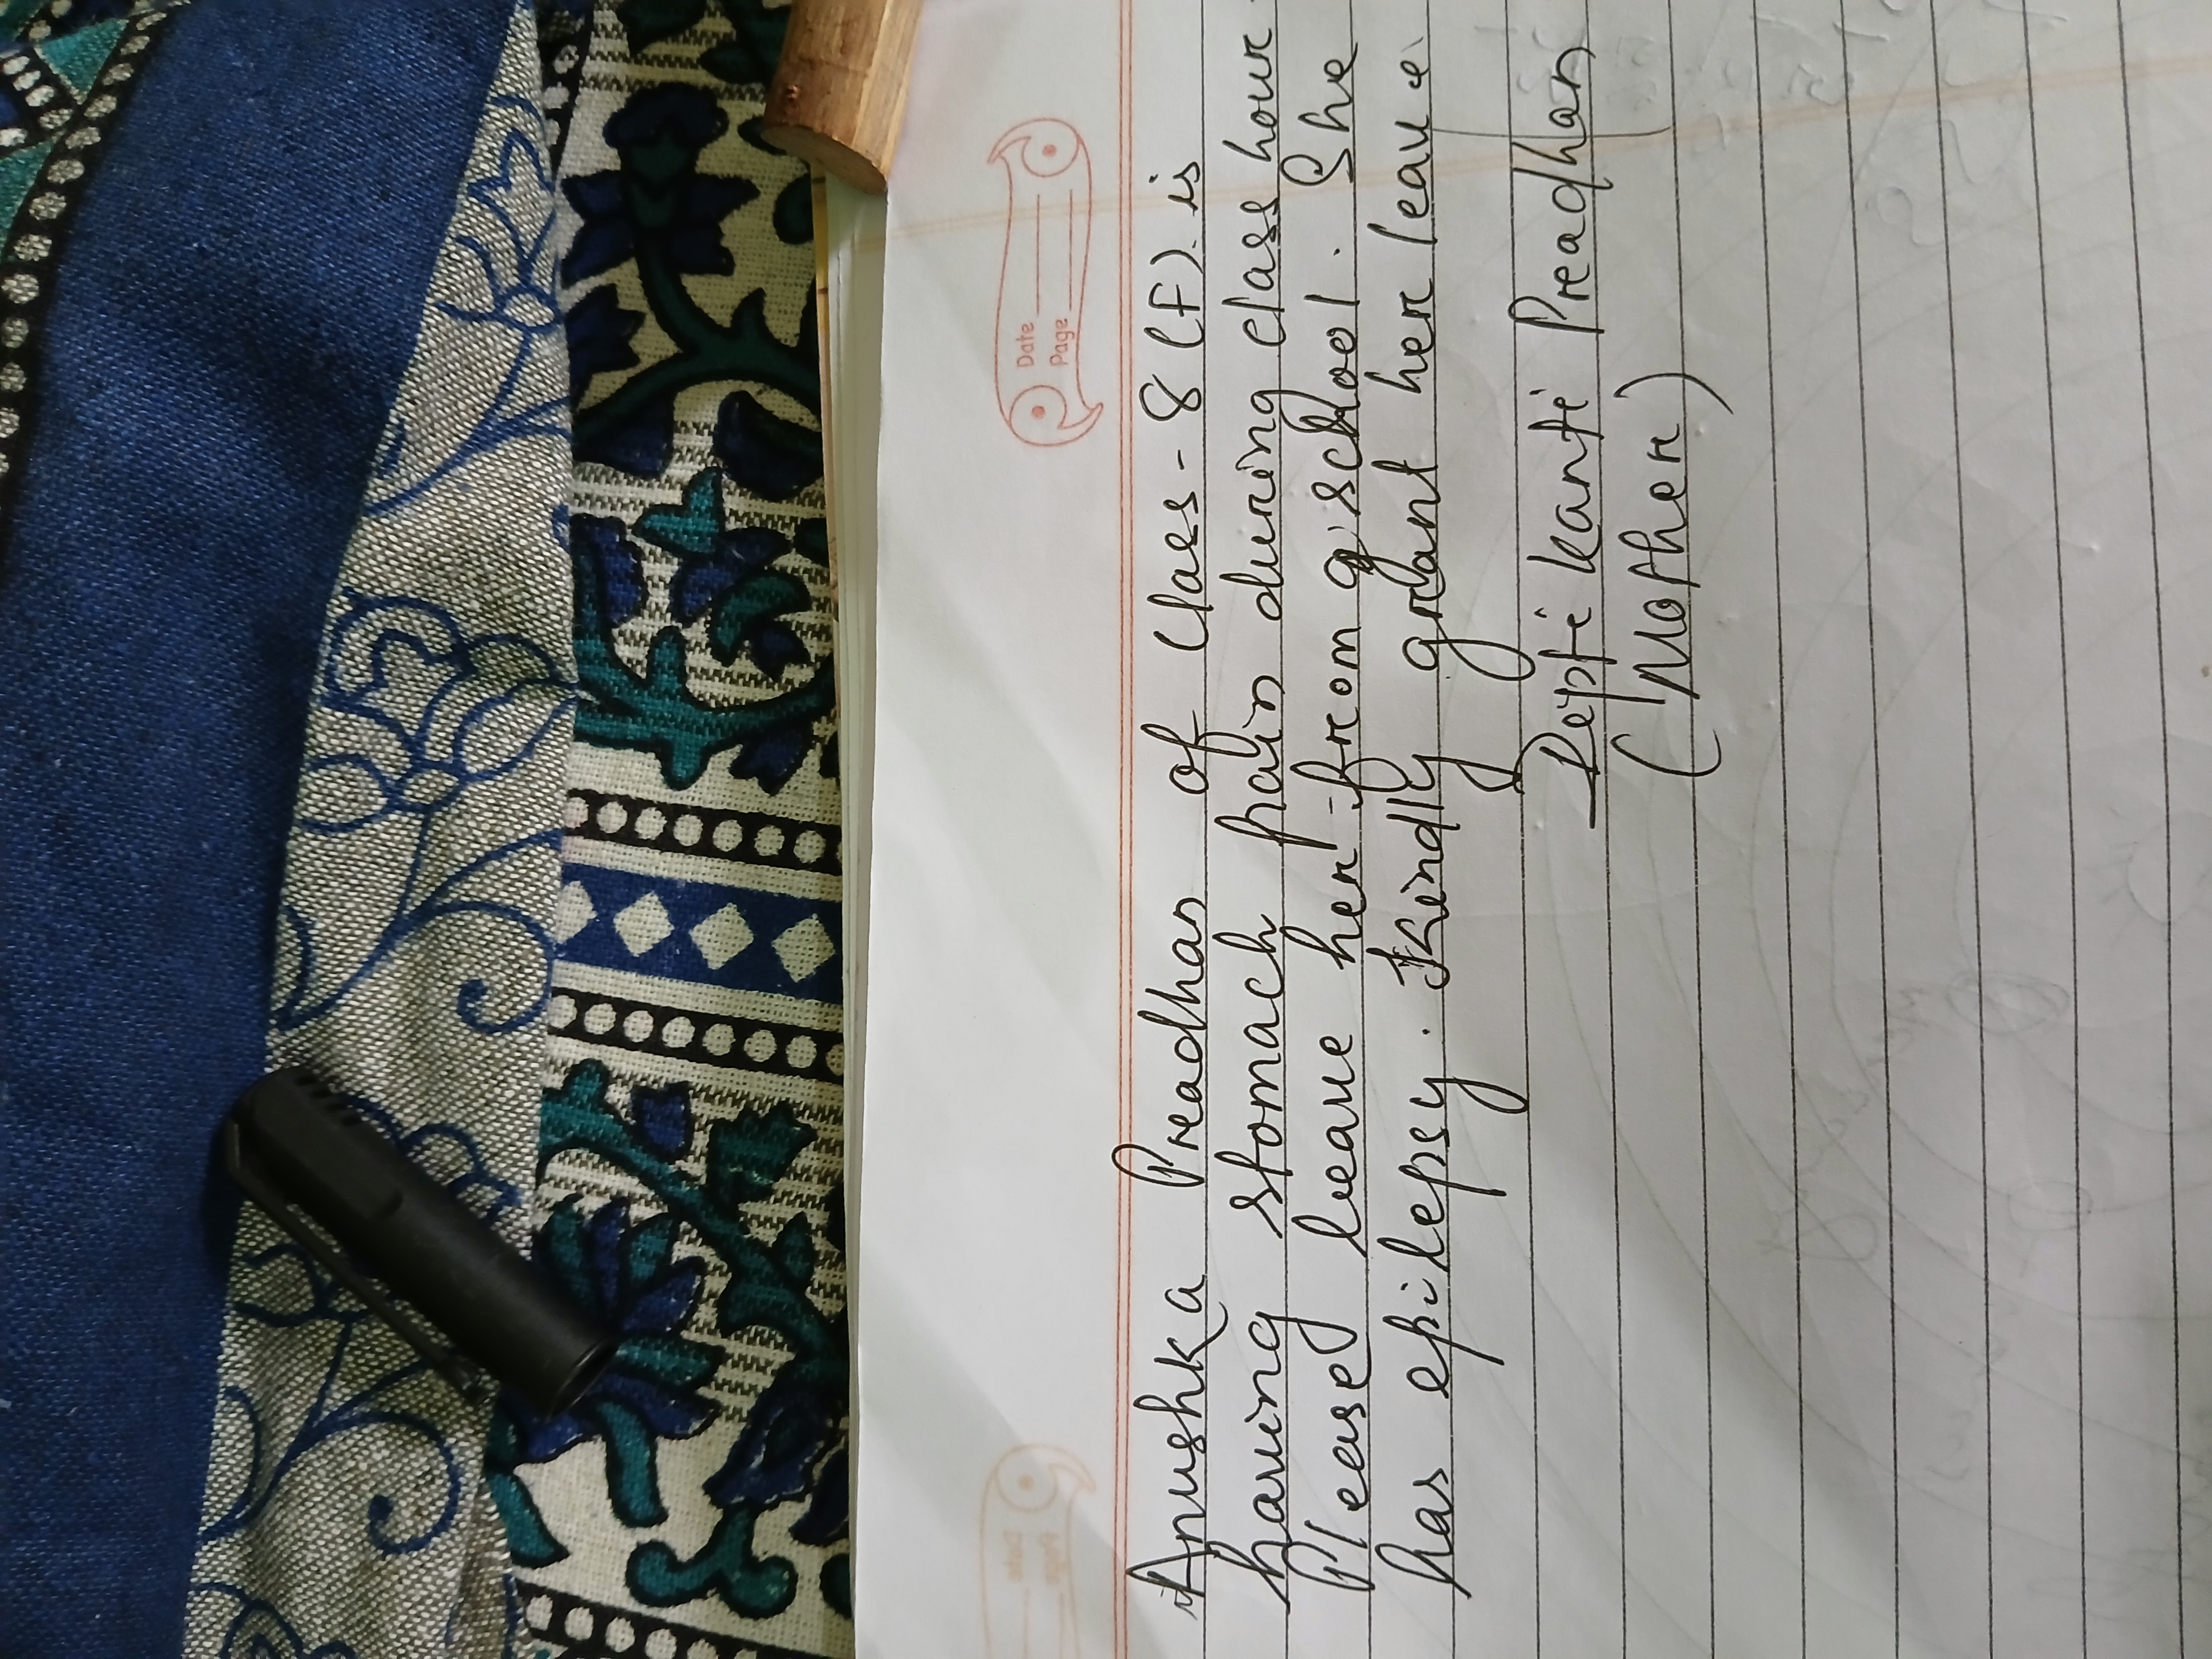 Date
Page
Anushka Pradhan of Class - 8 (F). is
having stomach pain during class hour.
Please leave her from school. She
has epilepsy. Kindly grant her leave.
Diptikanti Pradhan
(Mother)